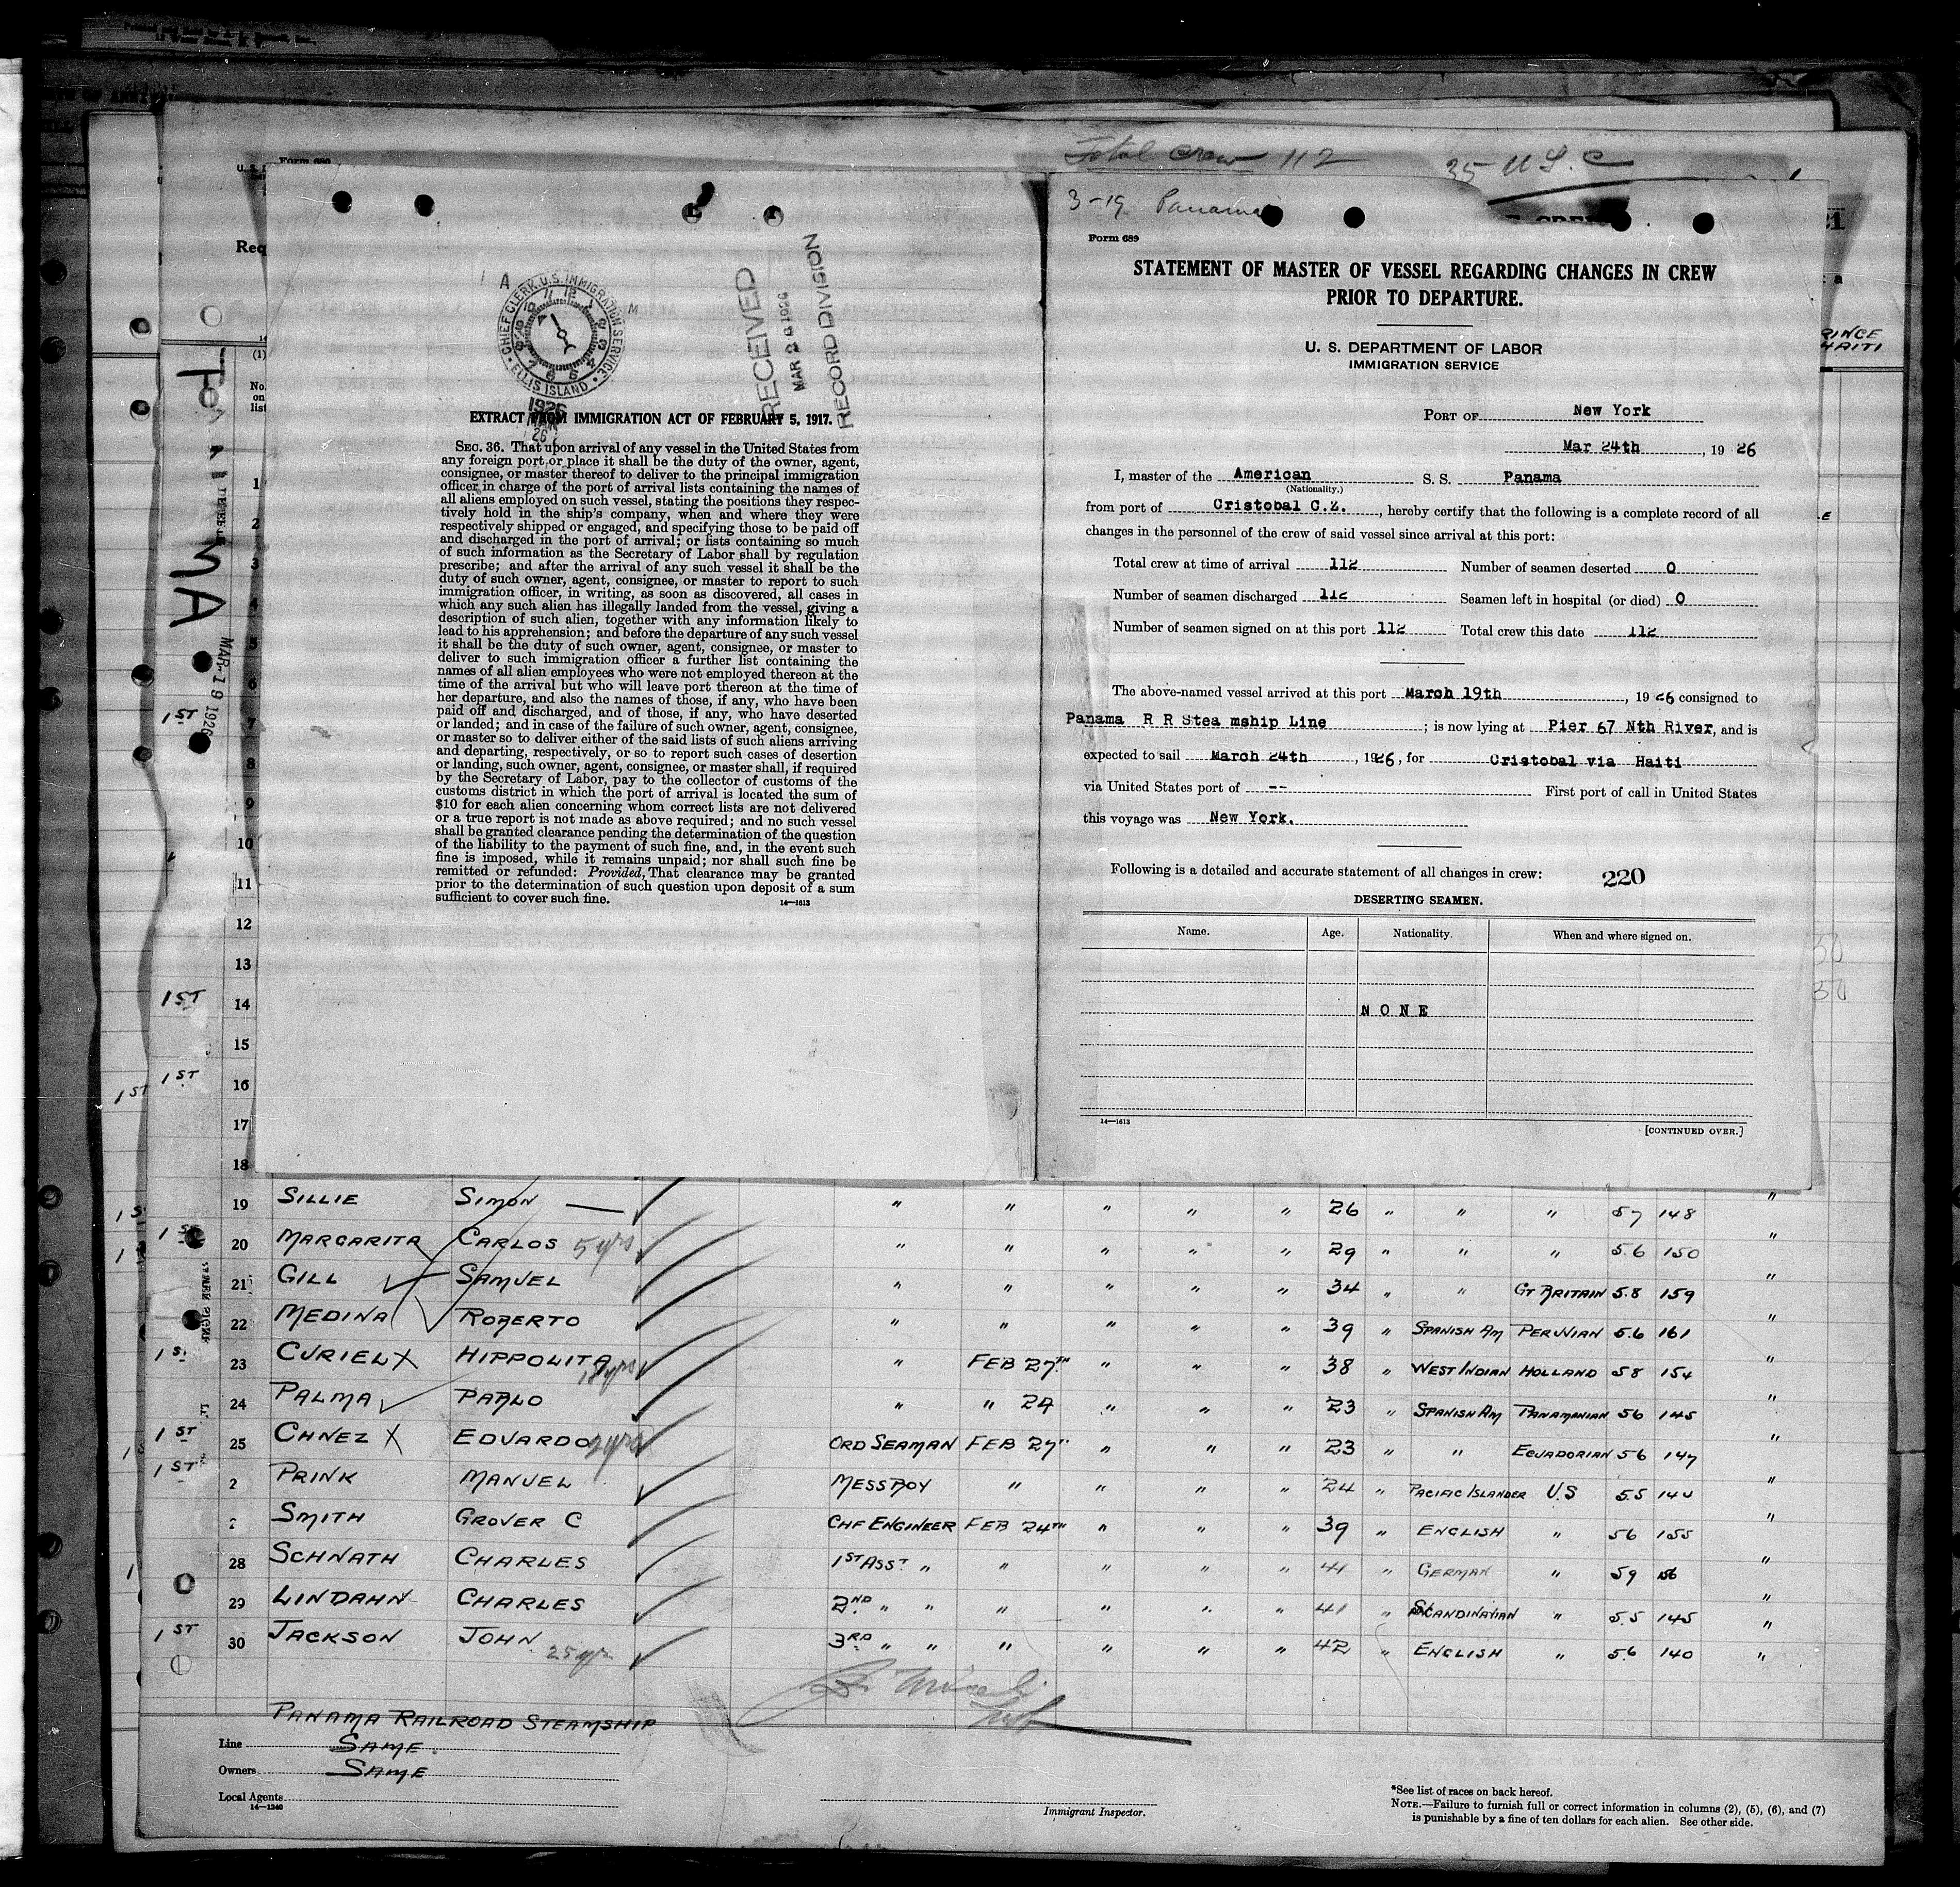 Total crew 112
35 U.S.C
Form 689
U. S.
Req
(1)
No. on list
MAR 19 1926
CHIEF CLERK, U.S. IMMIGRATION SERVICE
ELLIS ISLAND
1926
MAR
26
RECEIVED
MAR 26 1926
RECORD DIVISION
EXTRACT FROM IMMIGRATION ACT OF FEBRUARY 5, 1917.
SEC. 36. That upon arrival of any vessel in the United States from
any foreign port or place it shall be the duty of the owner, agent,
consignee, or master thereof to deliver to the principal immigration
officer in charge of the port of arrival lists containing the names of
all aliens employed on such vessel, stating the positions they respec-
tively hold in the ship's company, when and where they were
respectively shipped or engaged, and specifying those to be paid off
and discharged in the port of arrival; or lists containing so much
of such information as the Secretary of Labor shall by regulation
prescribe; and after the arrival of any such vessel it shall be the
duty of such owner, agent, consignee, or master to report to such
immigration officer, in writing, as soon as discovered, all cases in
which any such alien has illegally landed from the vessel, giving a
description of such alien, together with any information likely to
lead to his apprehension; and before the departure of any such vessel
it shall be the duty of such owner, agent, consignee, or master to
deliver to such immigration officer a further list containing the
names of all alien employees who were not employed thereon at the
time of the arrival but who will leave port thereon at the time of
her departure, and also the names of those, if any, who have been
paid off and discharged, and of those, if any, who have deserted
or landed; and in case of the failure of such owner, agent, consignee,
or master so to deliver either of the said lists of such aliens arriving
and departing, respectively, or so to report such cases of desertion
or landing, such owner, agent, consignee, or master shall, if required
by the Secretary of Labor, pay to the collector of customs of the
customs district in which the port of arrival is located the sum of
$10 for each alien concerning whom correct lists are not delivered
or a true report is not made as above required; and no such vessel
shall be granted clearance pending the determination of the question
of the liability to the payment of such fine, and, in the event such
fine is imposed, while it remains unpaid; nor shall such fine be
remitted or refunded: Provided, That clearance may be granted
prior to the determination of such question upon deposit of a sum
sufficient to cover such fine.
14—1613
3-19 Panama
Form 689
STATEMENT OF MASTER OF VESSEL REGARDING CHANGES IN CREW
PRIOR TO DEPARTURE.
U. S. DEPARTMENT OF LABOR
IMMIGRATION SERVICE
PORT OF New York
Mar 24th, 1926
I, master of the American S. S. Panama
(Nationality.)
from port of Cristobal C.Z., hereby certify that the following is a complete record of all
changes in the personnel of the crew of said vessel since arrival at this port:
Total crew at time of arrival 112 Number of seamen deserted 0
Number of seamen discharged 112 Seamen left in hospital (or died) 0
Number of seamen signed on at this port 112 Total crew this date 112
The above-named vessel arrived at this port March 19th, 1926 consigned to
Panama R R Stea mship Line; is now lying at Pier 67 Nth River, and is
expected to sail March 24th, 1926, for Cristobal via Haiti
via United States port of -- First port of call in United States
this voyage was New York.
Following is a detailed and accurate statement of all changes in crew: 220
DESERTING SEAMEN.
Name. Age. Nationality. When and where signed on.
NONE
14—1613
[CONTINUED OVER.]
1
2
3
4
5
6
1ST 7
8
9
10
11
12
13
1ST 14
15
1ST 16
17
18
19 SILLIE SIMON — " " " " " 26 " " " 57 148 "
1ST 20 MARGARITA CARLOS 5 yrs " " " " " 29 " " " 5.6 150 "
21 GILL SAMUEL " " " " " 34 " " GT BRITAIN 5.8 159 "
22 MEDINA ROBERTO " " " " " 39 " SPANISH AM PERUVIAN 5.6 161 "
1ST 23 CURIEL X HIPPOLITA 18 yrs " FEB 27TH " " " 38 " WEST INDIAN HOLLAND 58 154 "
24 PALMA PABLO " " 24 " " " 23 " SPANISH AM PANAMANIAN 56 145 "
1ST 25 CHNEZ X EDUARDO 2 yrs ORD SEAMAN FEB 27" " " " 23 " " ECUADORIAN 56 147 "
1ST 2 PRINK MANUEL MESSBOY " " " " 24 " PACIFIC ISLANDER U.S 5.5 140 "
2 SMITH GROVER C CHF ENGINEER FEB 24TH " " " 39 " ENGLISH " 56 155 "
28 SCHNATH CHARLES 1ST ASST. " " " " " 41 " GERMAN " 59 156 "
29 LINDAHN CHARLES 2ND " " " " " " 41 " SCANDINAVIAN " 5.5 145 "
1ST 30 JACKSON JOHN 25 yrs 3RD " " " " " " 42 " ENGLISH " 5.6 140 "
PANAMA RAILROAD STEAMSHIP
Line SAME
Owners SAME
Local Agents
14—1240
Immigrant Inspector.
*See list of races on back hereof.
NOTE.—Failure to furnish full or correct information in columns (2), (5), (6), and (7)
is punishable by a fine of ten dollars for each alien. See other side.